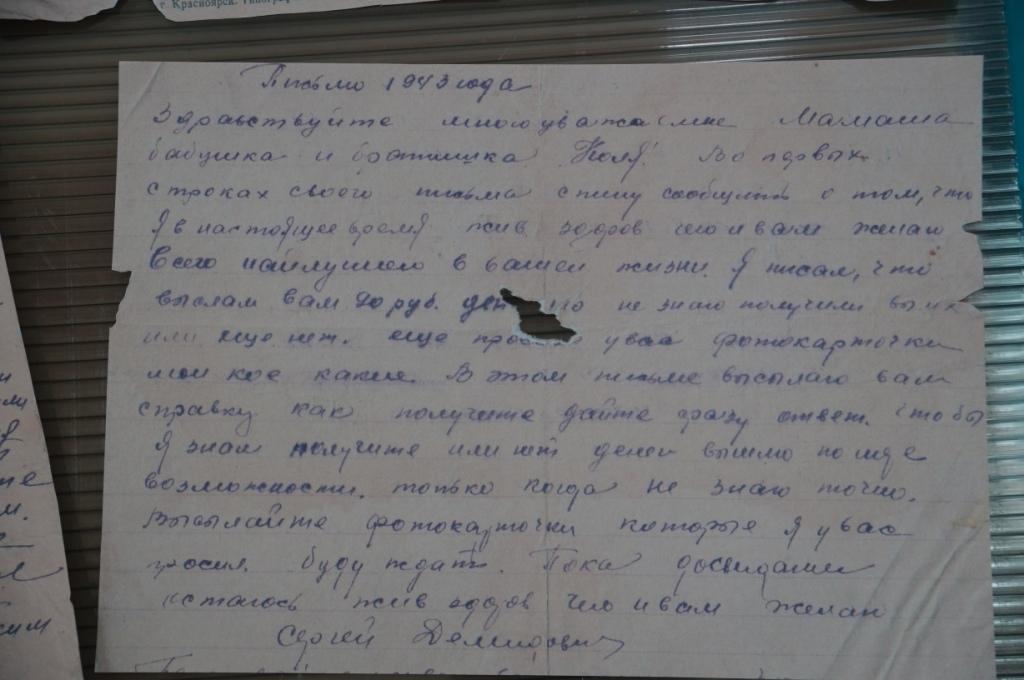 г. Красноярск. Типогра
Письмо 1943 года
Здравствуйте многоуважаемые Мамаша
бабушка и братишка Коля! Во первых
строках своего письма спешу сообщить о том, что
Я в настоящее время жив здоров чего и вам желаю
Всего найлучшего в вашей жизни. Я писал, что
выслал вам руб. ден но не знаю получили вы их
или еще нет. еще просил у вас фотокарточки
мои кое какие. В этом письме высылаю вам
справку как получите дайте сразу ответ. Чтобы
Я знал получите или нет денег вышлю по мере
возможности. только когда не знаю точно.
Высылайте фотокарточки которые я у вас
просил. буду ждать. Пока досвидания
остаюсь жив здоров чего и вам желаю
Сергей Демидович